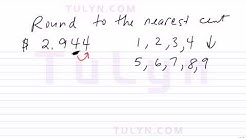 TULYN.COM
Round to the nearest cent
$ 2.944 1, 2, 3, 4 ↓
5, 6, 7, 8, 9
TULYN
WWW.TULYN.COM